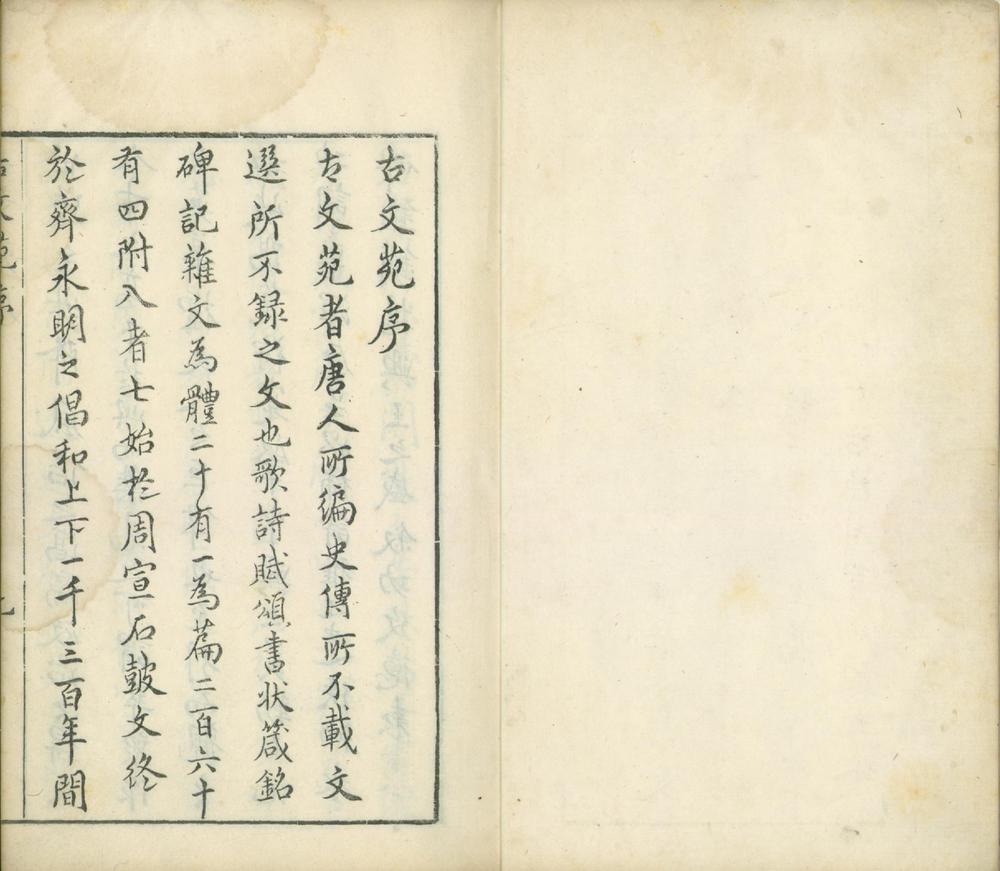 古文苑序
古文苑者唐人所編史傳所不載文
選所不録之文也歌詩賦頌書状箴銘
碑記雜文為體二十有一為篇二百六十
有四附入者七始於周宣石鼓文終
於齊永明之倡和上下一千三百年間
古文苑序